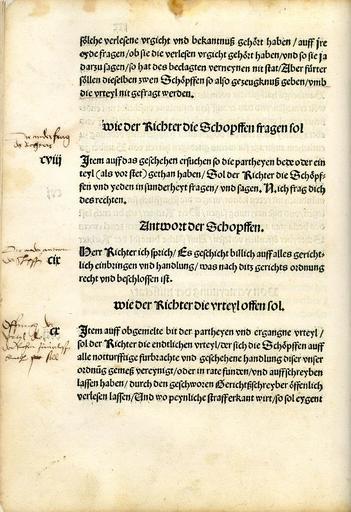 sölche verlesene vrgicht vnd bekantnuß gehört haben / auff jre
eyde fragen / ob sie die verlesen vrgicht gehört haben / vnd so sie ja
darzu sagen / so hat des beclagten verneynen nit stat / Aber fürter
söllen dieselben zwen Schöpffen so also gezeugknuß geben / vmb
die vrteyl nit gefragt werden.
wie der Richter die Schopffen fragen sol
cviij Item auff das geschehen ersuchen so die partheyen bede oder ein
teyl (als vorstet) gethan haben / Sol der Richter die Schöpf-
fen vnd yeden in sunderheyt fragen / vnd sagen. N. ich frag dich
des rechten.
Antwort der Schopffen.
cix Herr Richter ich sprich / Es geschicht billich auff alles gericht-
lich einbringen vnd handlung / was nach dits gerichts ordnung
recht vnd beschlossen ist.
wie der Richter die vrteyl offen sol.
cx Item auff obgemelte bit der partheyen vnd ergangne vrteyl /
sol der Richter die endtlichen vrteyl / der sich die Schöpffen auff
alle notturfftige fürbrachte vnd geschehene handlung diser vnser
ordnüg gemeß vereynigt / oder in rate funden / vnd auffschreyben
lassen haben / durch den geschwornen Gerichtßschreyber öffenlich
verlesen lassen / Vnd wo peynliche strafferkant wirt / so sol eygent